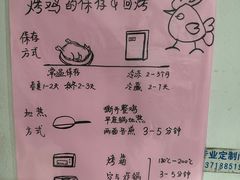 烤鸡的保存与回烤
保存
方式
常温保存
冷冻 2-3个月
春夏1-2天 秋冬2-3天
冷藏 1-7天
加热
方式
撕开整鸡
平底锅加热
两面各煎 3-5分钟
烤箱
180℃-200℃
3-5分钟
专业定制